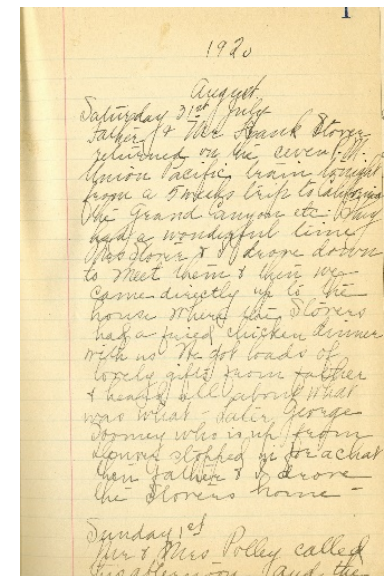 1
1920
August
Saturday 31st July
Father & Mr Frank Stover
returned on the seven P.M.
Union Pacific train tonight
from a 5 weeks trip to California
The Grand Canyon etc. They
had a wonderful time
Mrs Stover & I drove down
to meet them & then we
came directly up to the
house where the Stovers
had a fried chicken dinner
with us We got loads of
lovely gifts from father
& heard all about what
was what - Later George
Toomey who is up from
Denver stopped in for a chat
then Father & I drove
the Stovers home -
Sunday 1st
Mr & Mrs Polley called
this afternoon and the